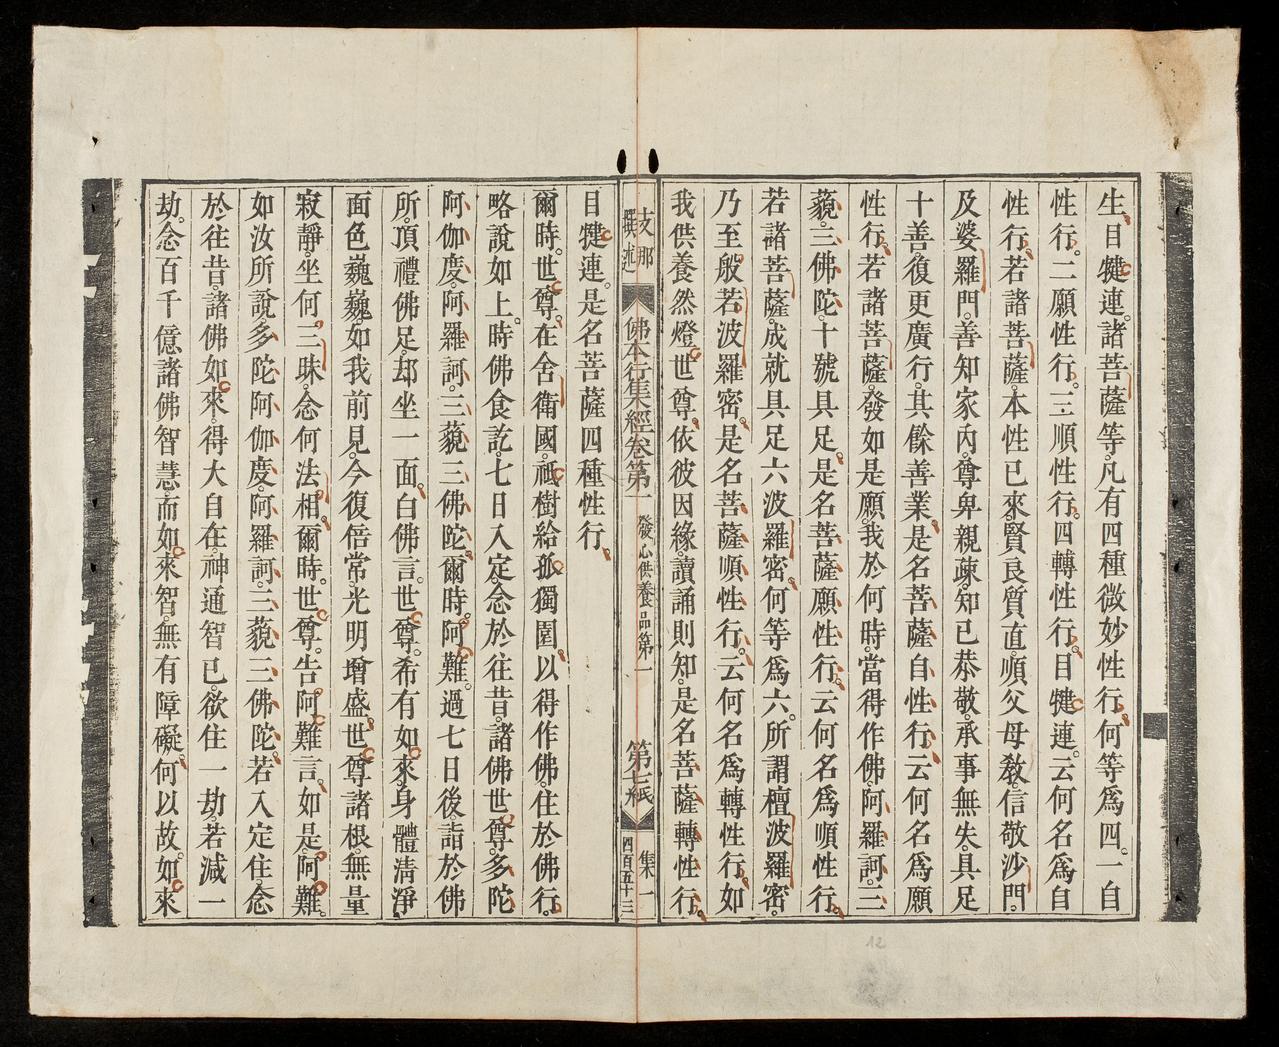 生。目犍連。諸菩薩等。凡有四種微妙性行。何等爲四。一自
性行。二願性行。三順性行。四轉性行。目犍連。云何名爲自
性行。若諸菩薩。本性已來。賢良質直。順父母敎。信敬沙門。
及婆羅門。善知家內。尊卑親疎。知已恭敬。承事無失。具足
十善。復更廣行。其餘善業。是名菩薩自性行。云何名爲願
性行。若諸菩薩。發如是願。我於何時。當得作佛。阿羅訶。三
藐。三佛陀。十號具足。是名菩薩願性行。云何名爲順性行。
若諸菩薩。成就具足六波羅密。何等爲六。所謂檀波羅密。
乃至般若波羅密。是名菩薩順性行。云何名爲轉性行。如
我供養然燈世尊。依彼因緣。讀誦則知。是名菩薩轉性行。
支那
撰述
佛本行集經卷第一 發心供養品第一 第七紙
集一
四百五十三
目犍連。是名菩薩四種性行。
爾時。世尊。在舍衛國。祗樹給孤獨園。以得作佛。住於佛行。
略說如上。時佛食訖。七日入定。念於往昔。諸佛世尊。多陀
阿伽度。阿羅訶。三藐三佛陀。爾時。阿難。過七日後。詣於佛
所。頂禮佛足。却坐一面。白佛言。世尊。希有如來。身體清淨。
面色巍巍。如我前見。今復倍常。光明增盛。世尊諸根。無量
寂靜。坐何三昧。念何法相。爾時。世尊。告阿難言。如是。阿難。
如汝所說。多陀阿伽度。阿羅訶。三藐三佛陀。若入定住念
於往昔。諸佛如來。得大自在。神通智已。欲住一劫。若減一
劫。念百千億諸佛智慧。而如來智。無有障礙。何以故。如來